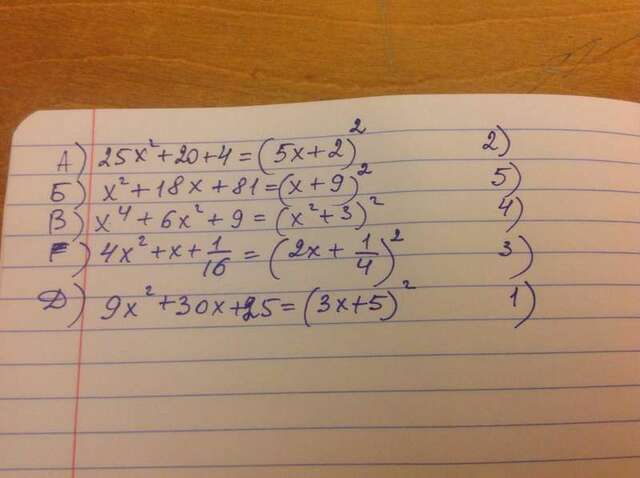 А) 25x² + 20 + 4 = (5x + 2)² 2)
Б) x² + 18x + 81 = (x + 9)² 5)
В) x⁴ + 6x² + 9 = (x² + 3)² 4)
Г) 4x² + x + 1/16 = (2x + 1/4)² 3)
Д) 9x² + 30x + 25 = (3x + 5)² 1)